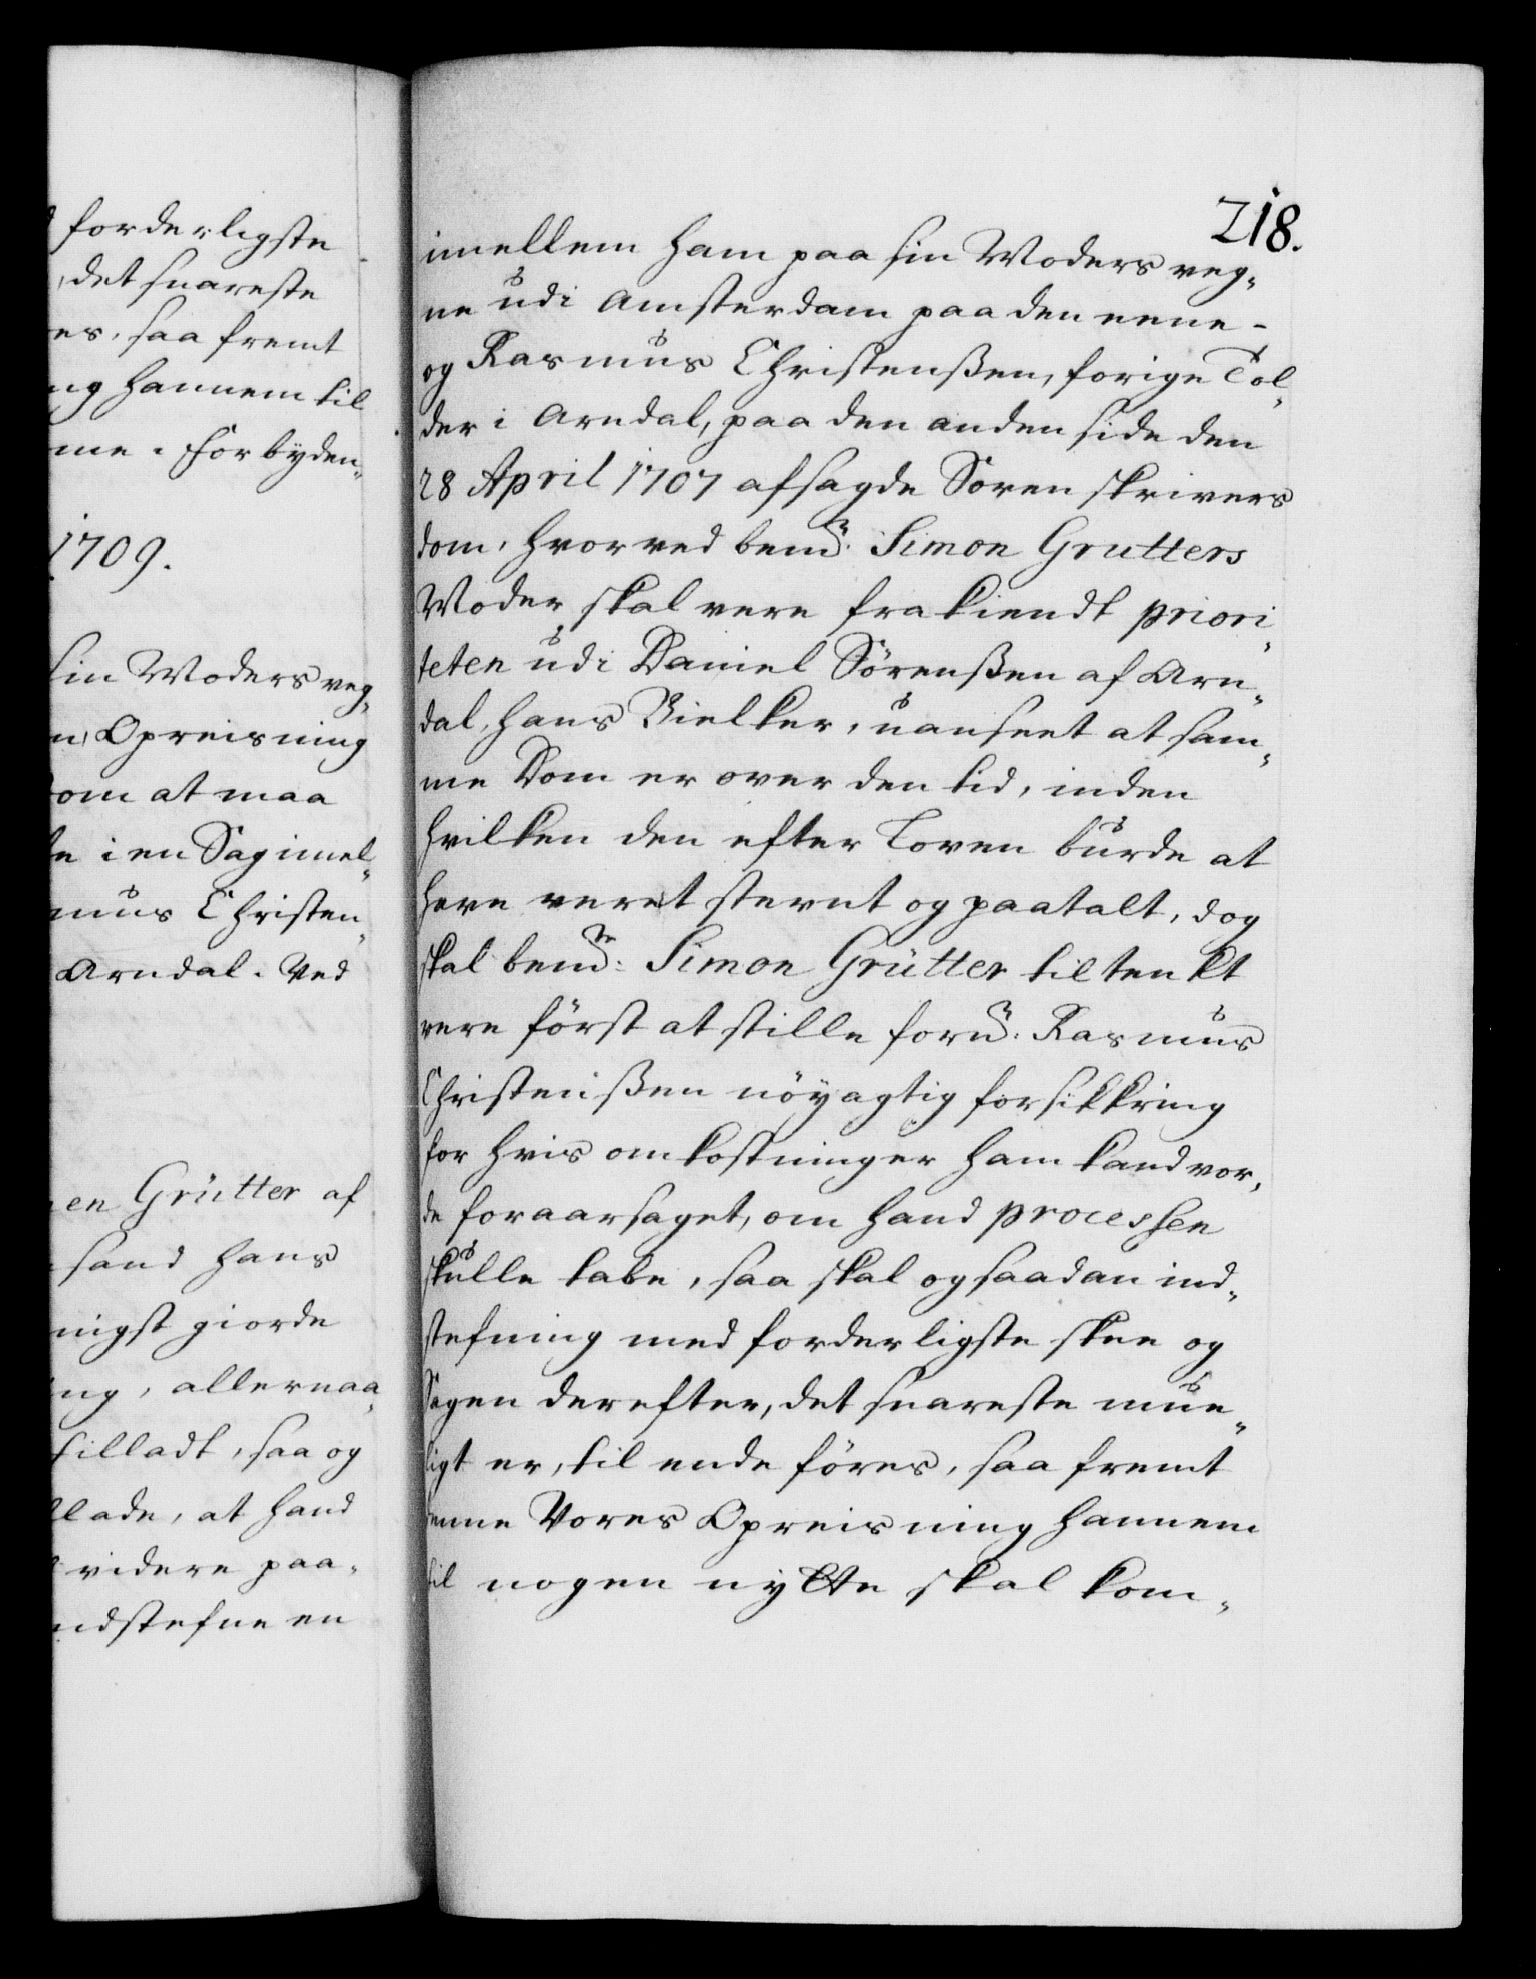 forderligste
det snareste
es, saa fremt
ng hannem til
me. Forbyden„
1709.
sin Moders veg„
n, Opreisning
om at maa
te i en Sag imel„
mus Christen„
Arndal. Ved
en Grütter af
sand hans
nigst giorde
ng, allernaa„
tilladt, saa og
lade, at hand
videre paa„
ndstefne en
218.
imellem ham paa sin Moders veg„
ne udi Amsterdam paa den eene -
og Rasmus Christenßen, forige Tol„
der i Arndal, paa den anden side den
28 April 1707 afsagde Soren skrivers
dom, hvorved bemte. Simon Grutters
Moder skal vere frakiendt priori„
teten udi Daniel Sörenßen af Arn„
dal, hans Midler, uanseet at sam„
me Dom er over den tid, inden
hvilken den efter Loven burde at
have veret stevnt og paatalt, dog
skal bemte: Simon Grütter tiltenkt
vere först at stille fornte. Rasmus
Christenißen nöyagtig forsikkring
for hvis omkostninger ham kand vor„
de foraarsaget, om hand processen
skulle tabe, saa skal og saadan ind„
stefning med forderligste skee og
Sagen derefter, det snareste mue„
ligt er, til ende föres, saa fremt
denne Vores Opreisning hannem
til nogen nytte skal kom„